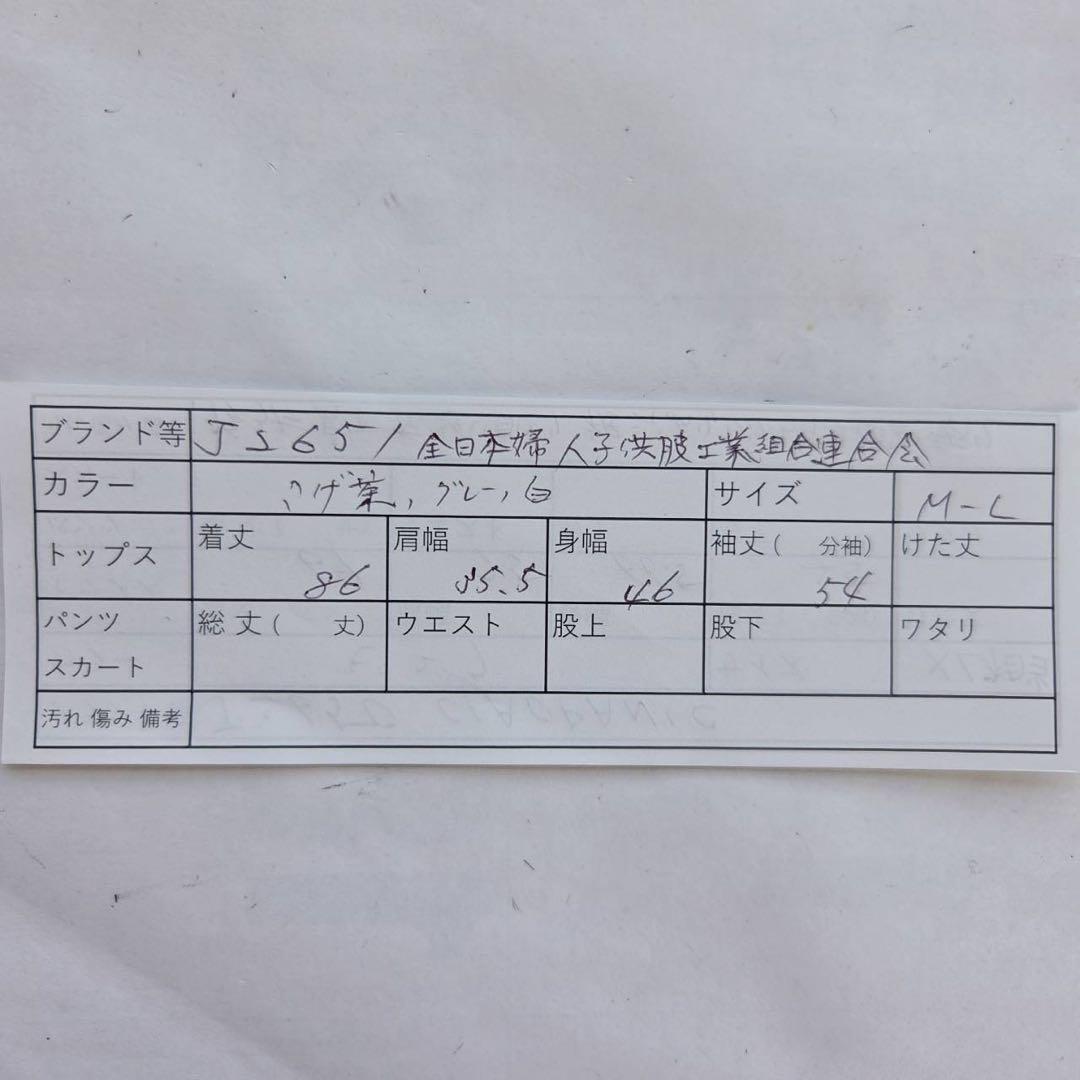 ブランド等 J2651 全日本婦人子供服工業組合連合会
カラー こげ茶、グレー、白 サイズ M-L
トップス 着丈 86 肩幅 35.5 身幅 46 袖丈（ 分袖） 54 けた丈
パンツ 総丈（ 丈） ウエスト 股上 股下 ワタリ
スカート
汚れ 傷み 備考